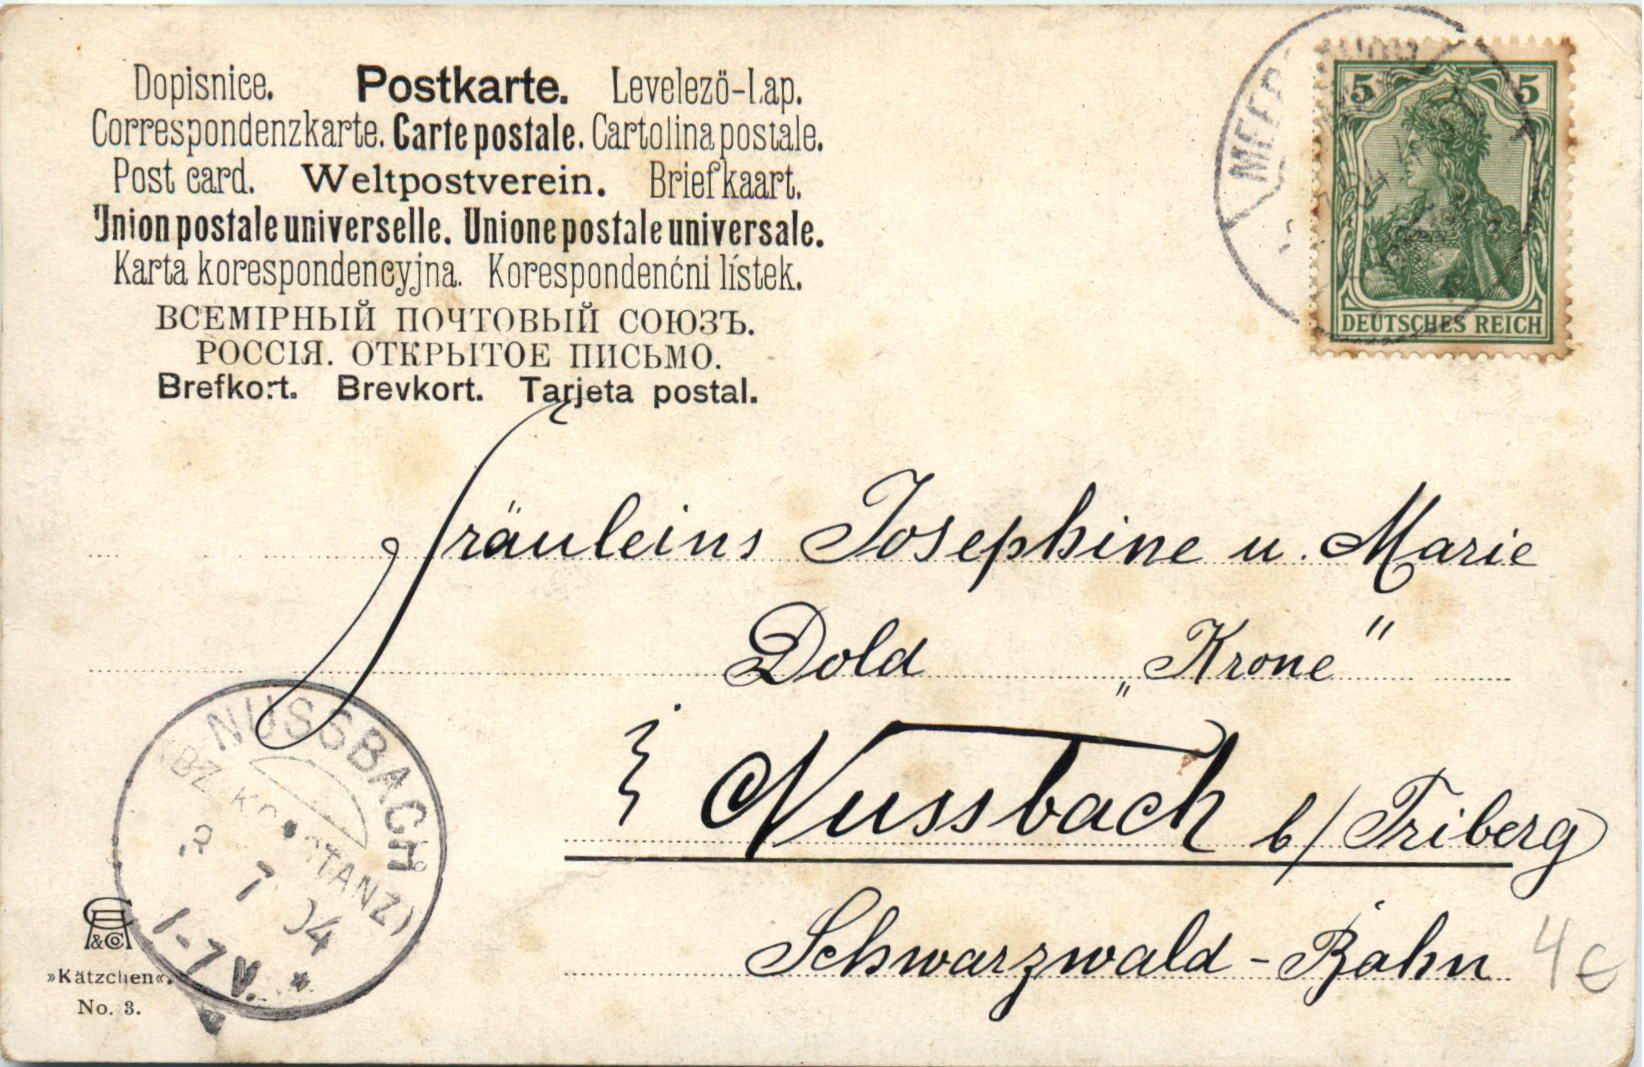 Dopisnice. Postkarte. Levelezö-Lap.
Correspondenzkarte. Carte postale. Cartolina postale.
Post card. Weltpostverein. Briefkaart.
Union postale universelle. Unione postale universale.
Karta korespondencyjna. Korespondenćni lístek.
ВСЕМІРНЫЙ ПОЧТОВЫЙ СОЮЗЪ.
РОССІЯ. ОТКРЫТОЕ ПИСЬМО.
Brefkort. Brevkort. Tarjeta postal.
5 5
DEUTSCHES REICH
Fräuleins Josephine u. Marie
Dold „Krone"
Nussbach b/ Triberg
Schwarzwald-Bahn
4 €
NUSSBACH
(BZ. KONSTANZ)
2 7 04
1-7 V. *
&Co
»Kätzchen«.
No. 3.